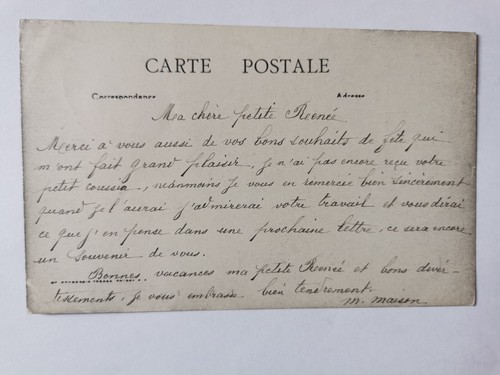 CARTE POSTALE
Correspondance Adresse
Ma chère petite Reenée
Merci à vous aussi de vos bons souhaits de fête qui
m'ont fait grand plaisir, je n'ai pas encore reçu votre
petit coussin, néanmoins je vous en remercie bien sincèrement
quand je l'aurai j'admirerai votre travail et vous dirai
ce que j'en pense dans une prochaine lettre, ce sera encore
un souvenir de vous.
Bonnes vacances ma petite Reenée et bons diver-
tissements, je vous embrasse bien tendrement
M. Maison